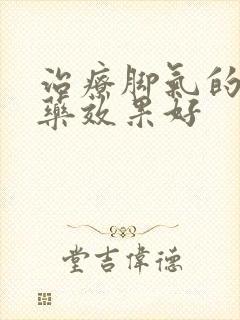 治療脚氣的
藥效果好
堂吉偉德